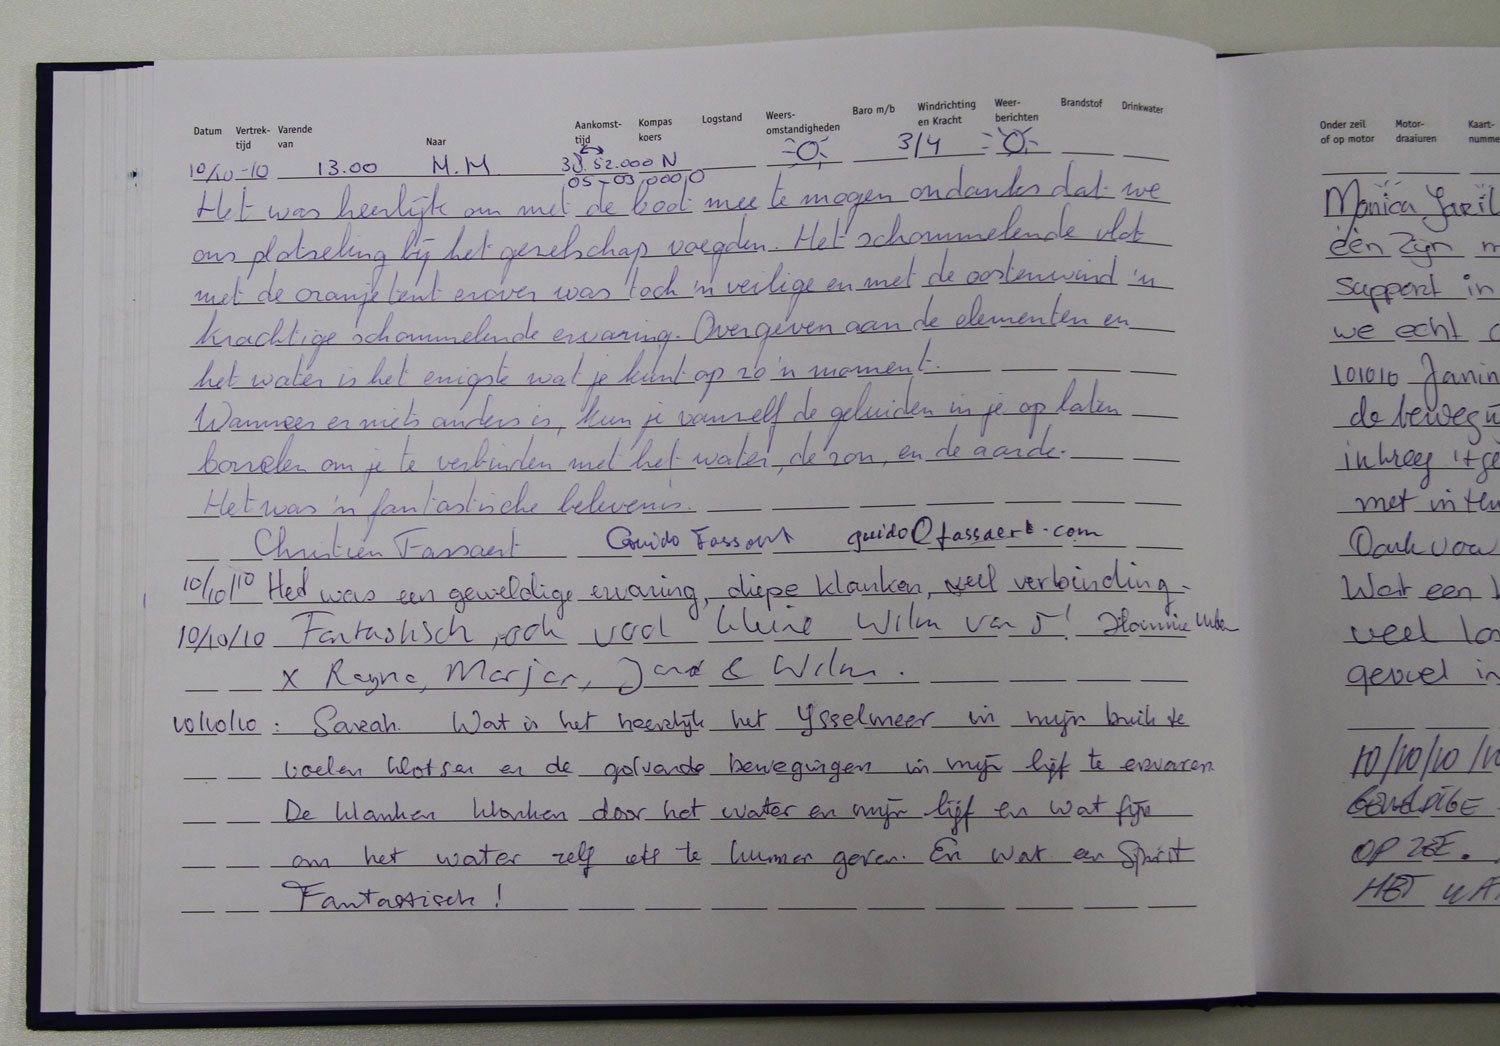 Datum Vertrek-tijd Varende van Naar Aankomst-tijd Kompas koers Logstand Weers-omstandigheden Baro m/b Windrichting en Kracht Weer-berichten Brandstof Drinkwater
10/10-10 13.00 M.M 52.000 N 3/4
05-03,000,0
Het was heerlijk om met de boot mee te mogen ondanks dat we
ons plotseling bij het gezelschap voegden. Het schommelende vlot
met de oranje tent erover was toch 'n veilige en met de oostenwind 'n
krachtige schommelende ervaring. Overgeven aan de elementen en
het water is het enigste wat je kunt op zo'n moment.
Wanneer er niets anders is, kun je vanzelf de geluiden in je op laten
borrelen om je te verbinden met het water, de zon, en de aarde.
Het was 'n fantastische belevenis.
Christien Fassaert Guido Fassaert guido@fassaert.com
10/10/10 Het was een geweldige ervaring, diepe klanken, veel verbinding.
10/10/10 Fantastisch, ook voor kleine Wilm van 5!
x Rayna, Marjan, & Wilm.
10/10/10 : Sarah. Wat is het heerlijk het IJsselmeer in mijn buik te
voelen klotsen en de golvende bewegingen in mijn lijf te ervaren.
De klanken klonken door het water en mijn lijf en wat fijn
om het water zelf iets te kunnen geven. En wat een Spirit
Fantastisch!
Onder zeil of op motor Motor-draaiuren Kaart-numme
Monica
één zijn
support in
we echt
101010 Janin
de beweg
inkreeg 't ge
met inten
Dank voor
Wat een
veel
gevoel in
10/10/10
GEWELDIGE
OP ZEE.
HET WA